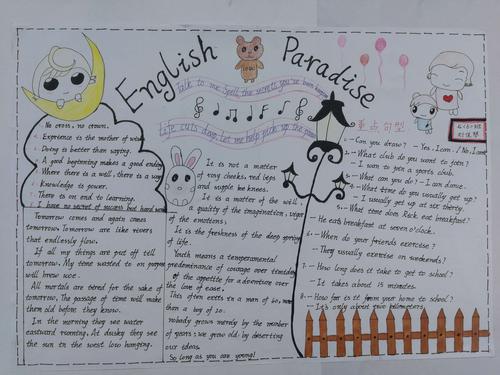 English Paradise
Talk to me Spell the secrets you've been
Life cuts deep, let me help pick up the
重点句型
No cross, no crown.
Experience is the mother of
Doing is better than saying.
A good beginning makes a good ending
Where there is a will, there is a way
Knowledge is power.
There is on end to learning.
I have no secret of success but hard work
Tomorrow comes and again comes
tomorrow. Tomorrow are like rivers
that endlessly flow.
If all my things are put off till
tomorrow. My time wasted to on
will brew woe.
All mortals are tired for the sake of
tomorrow. The passage of time will make
them old before they know.
In the morning they see water
eastward running. At dusky they see
the sun in the west low hanging.
It is not a matter
of rosy cheeks, red lips
and supple knees.
It is a matter of the will,
a quality of the imagination, vigor
of the emotions;
It is the freshness of the deep spring
of life.
Youth means a temperamental
predominance of courage over timidity
of the appetite for adventure over
the love of ease.
This often exists in a man of 60, more
than a boy of 20.
nobody grows merely by the number
of years; we grow old by deserting
our ideas.
So long as you are young!
1. - Can you draw? - Yes, I can. / No, I can't
2. - What club do you want to join?
- I want to join a sports club.
3. - What can you do? - I can dance.
4. - What time do you usually get up?
- I usually get up at six thirty.
5. - What time does Rick eat breakfast?
- He eats breakfast at seven o'clock.
6. - When do your friends exercise?
- They usually exercise on weekends!
7. - How long does it take to get to school?
- It takes about 15 minutes.
8. - How far is it from your home to school?
- It's only about two kilometers.